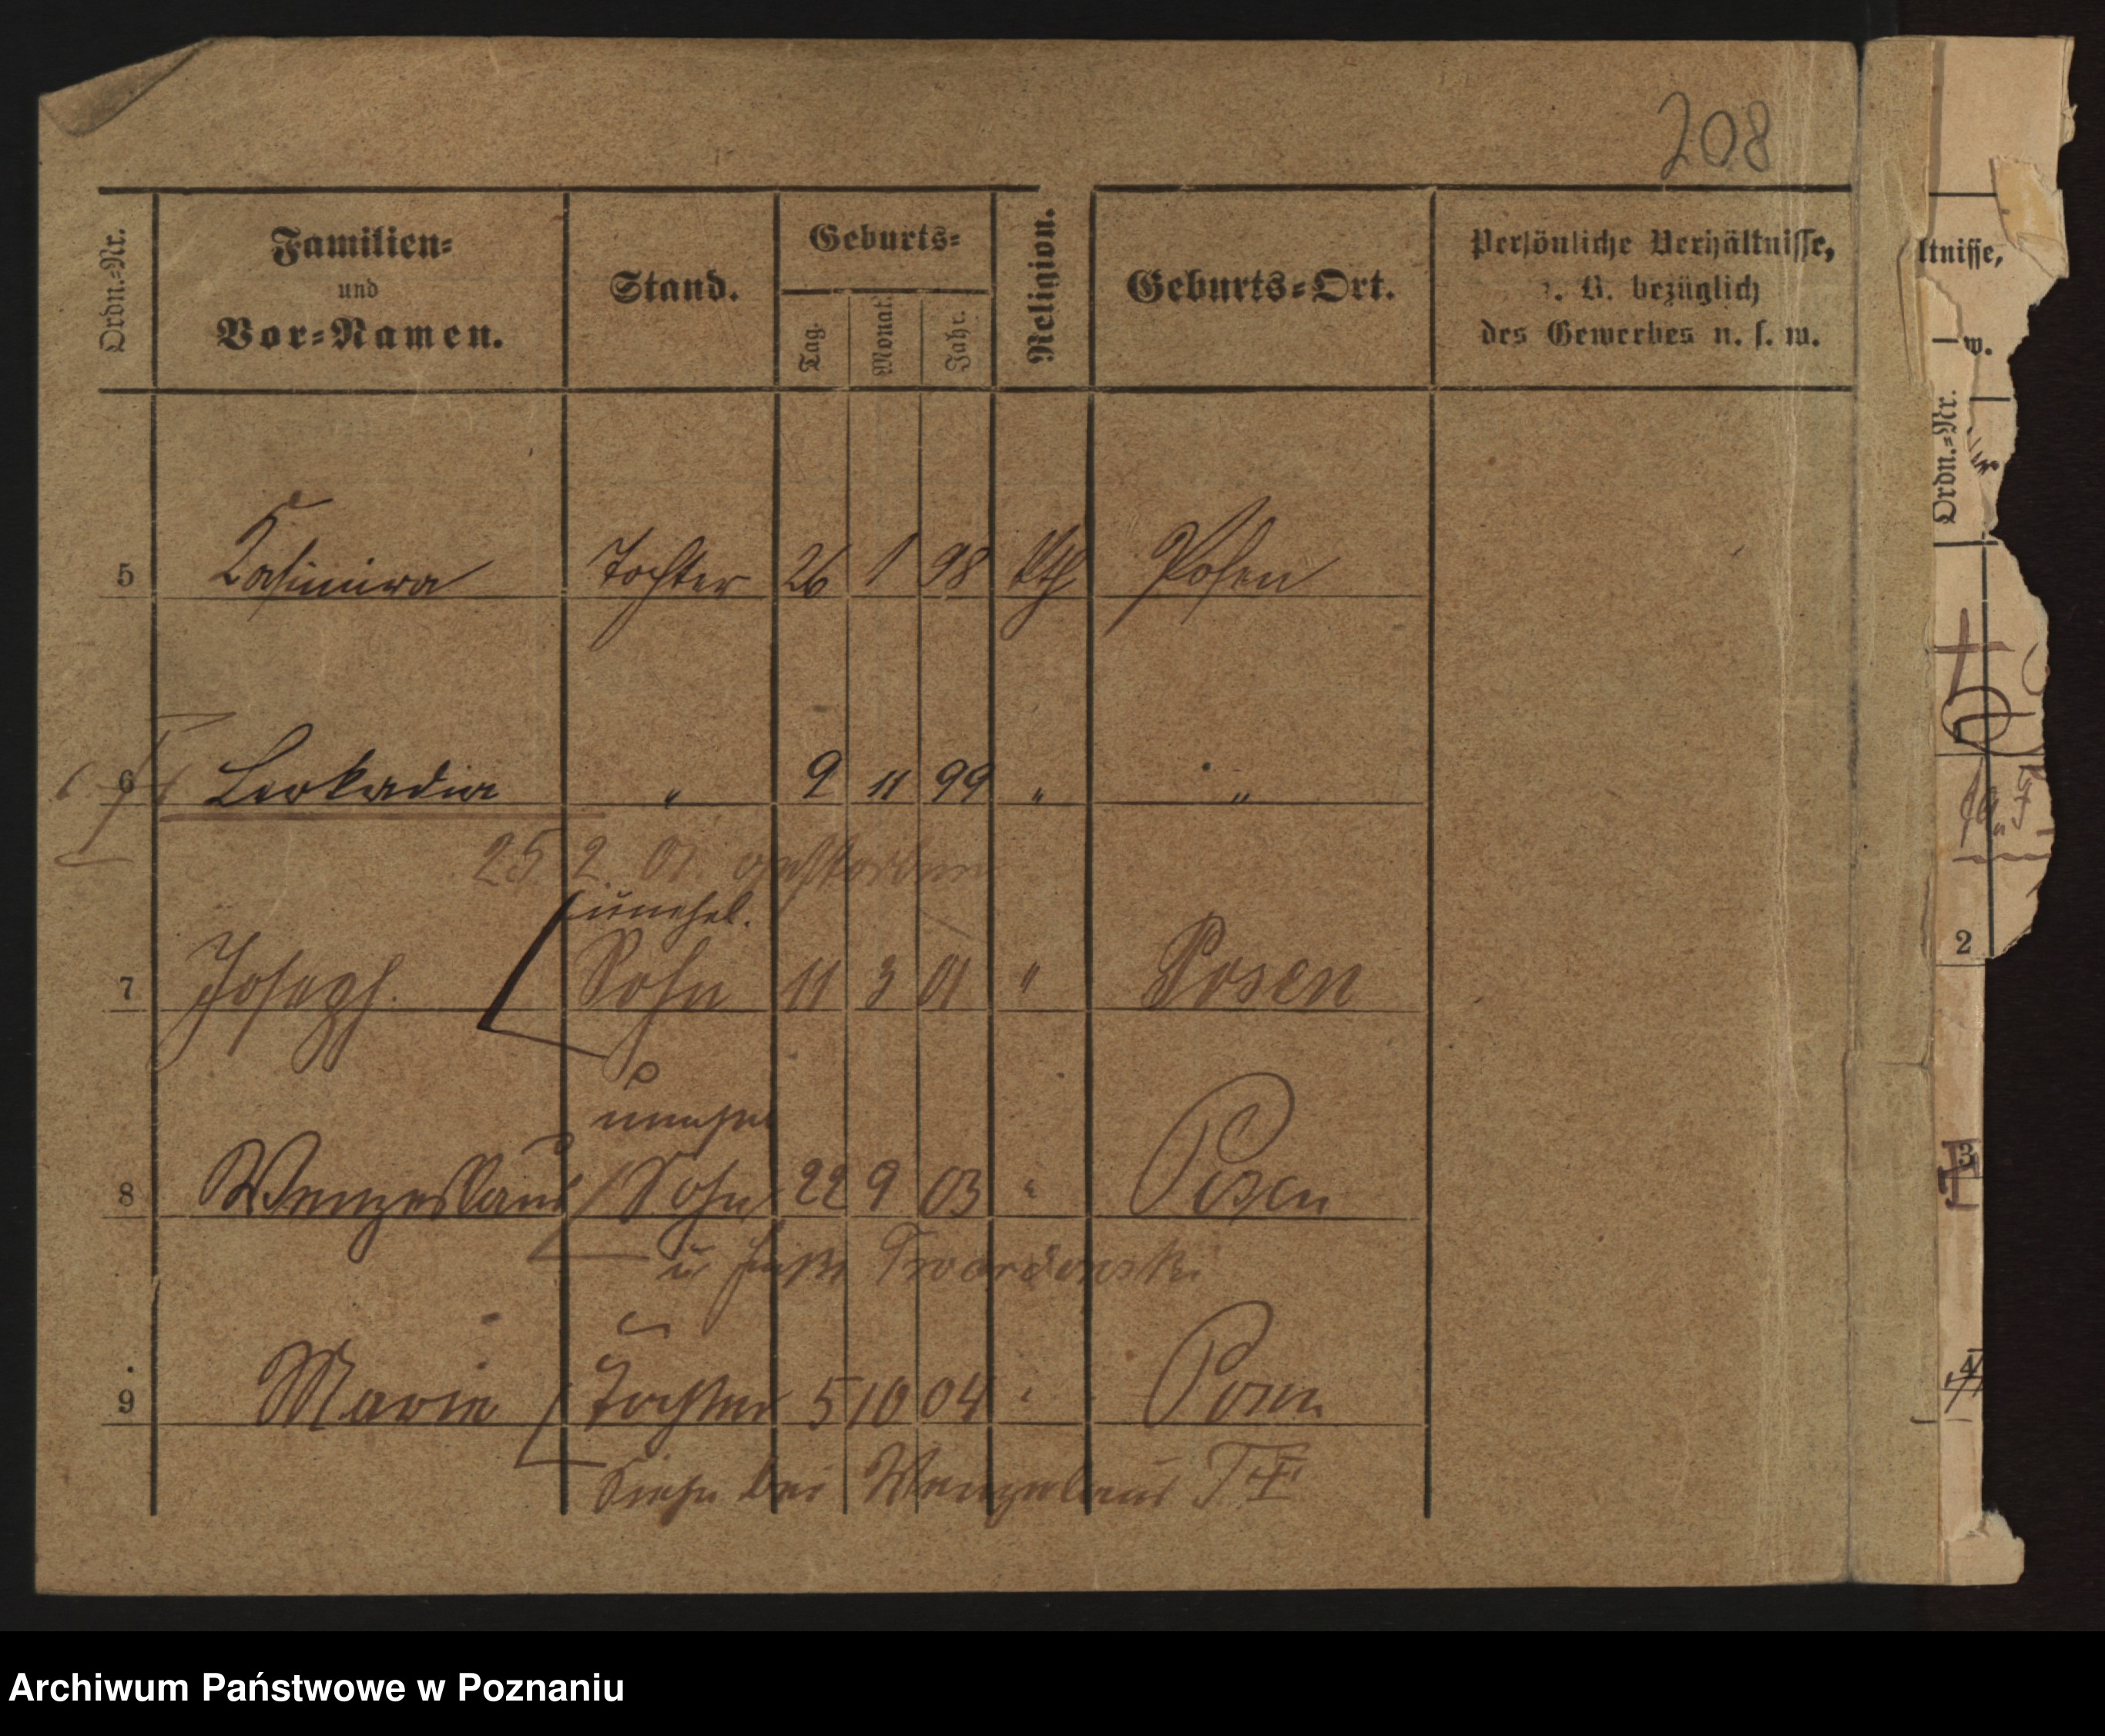 208
Ordn.-Nr.
Familien-
und
Vor-Namen.
Stand.
Geburts-
Tag.
Monat.
Jahr.
Religion.
Geburts-Ort.
Persönliche Verhältnisse,
z. B. bezüglich
des Gewerbes u. s. w.
5 Kasimira Tochter 26 1 98 kth Posen
6 Leokadia " 9 11 99 " "
25 2. 01. gestorben
unehel.
7 Joseph. Sohn 11 3 01 " Posen
unehel
8 Wenzeslaus Sohn 22 9 03 " Posen
u heißt Twardowski
9 Marie Tochter 5 10 04 " Posen
Siehe bei Wenzeslaus
ltnisse,
w.
Ordn.-Nr.
1
2
3
4
Archiwum Państwowe w Poznaniu